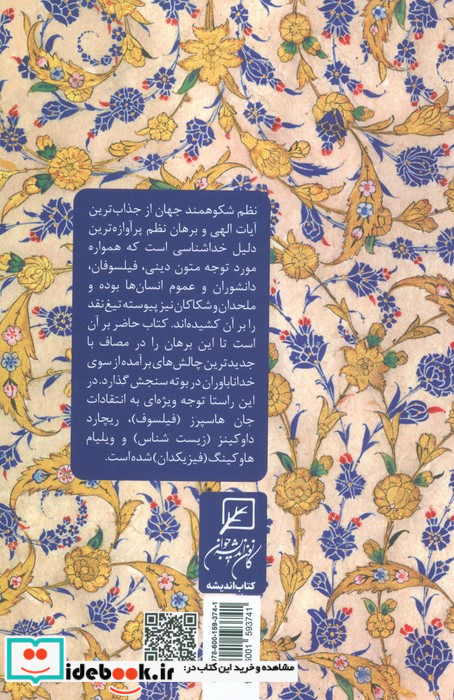 نظم شکوهمند جهان از جذاب‌ترین
آیات الهی و برهان نظم پرآوازه‌ترین
دلیل خداشناسی است که همواره
مورد توجه متون دینی، فیلسوفان،
دانشوران و عموم انسان‌ها بوده و
ملحدان و شکاکان نیز پیوسته تیغ نقد
را بر آن کشیده‌اند. کتاب حاضر بر آن
است تا این برهان را در مصاف با
جدیدترین چالش‌های برآمده از سوی
خداناباوران در بوته سنجش گذارد. در
این راستا توجه ویژه‌ای به انتقادات
جان هاسپرز (فیلسوف)، ریچارد
داوکینز (زیست شناس) و ویلیام
هاوکینگ (فیزیکدان) شده است.
کانون اندیشه جوان
کتاب اندیشه
978-600-159-374-1
6001 593741
مشاهده و خرید این کتاب در:
idebook.ir